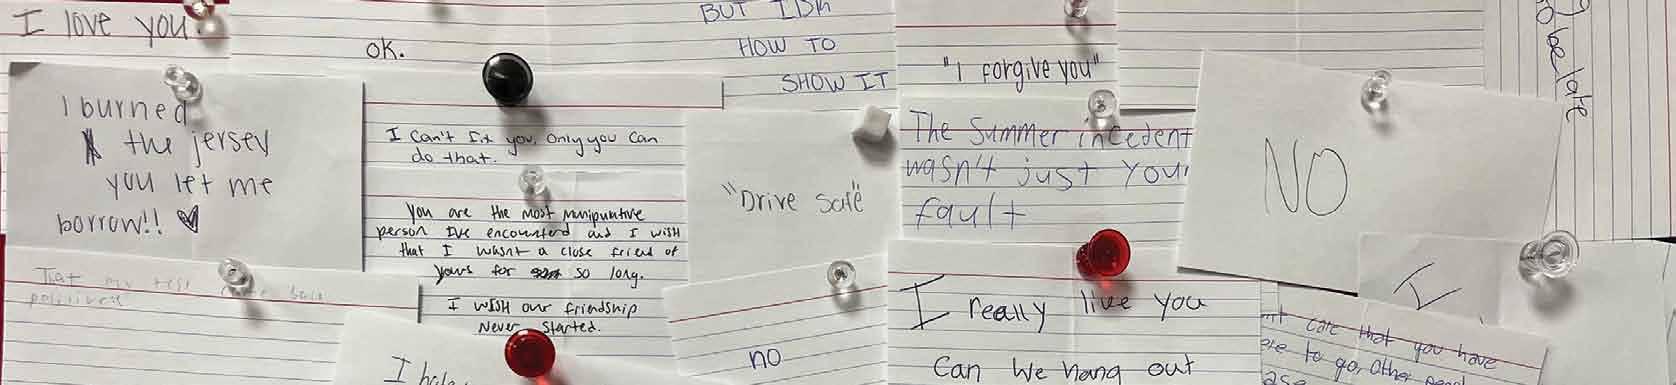 I love you.
ok.
BUT
HOW TO
SHOW IT
"I forgive you"
to be late
I burned
the jersey
you let me
borrow!! ♥
I can't fix you, only you can
do that.
You are the most manipulative
person I've encounterd and I wish
that I wasnt a close friend of
yours for so long.
I wish our friendship
Never started.
"Drive safe"
The Summer incedent
wasn't just your
fault
NO
That my test came back
positive
I
no
I really live you
Can we hang out
I
care that you have
to go, other